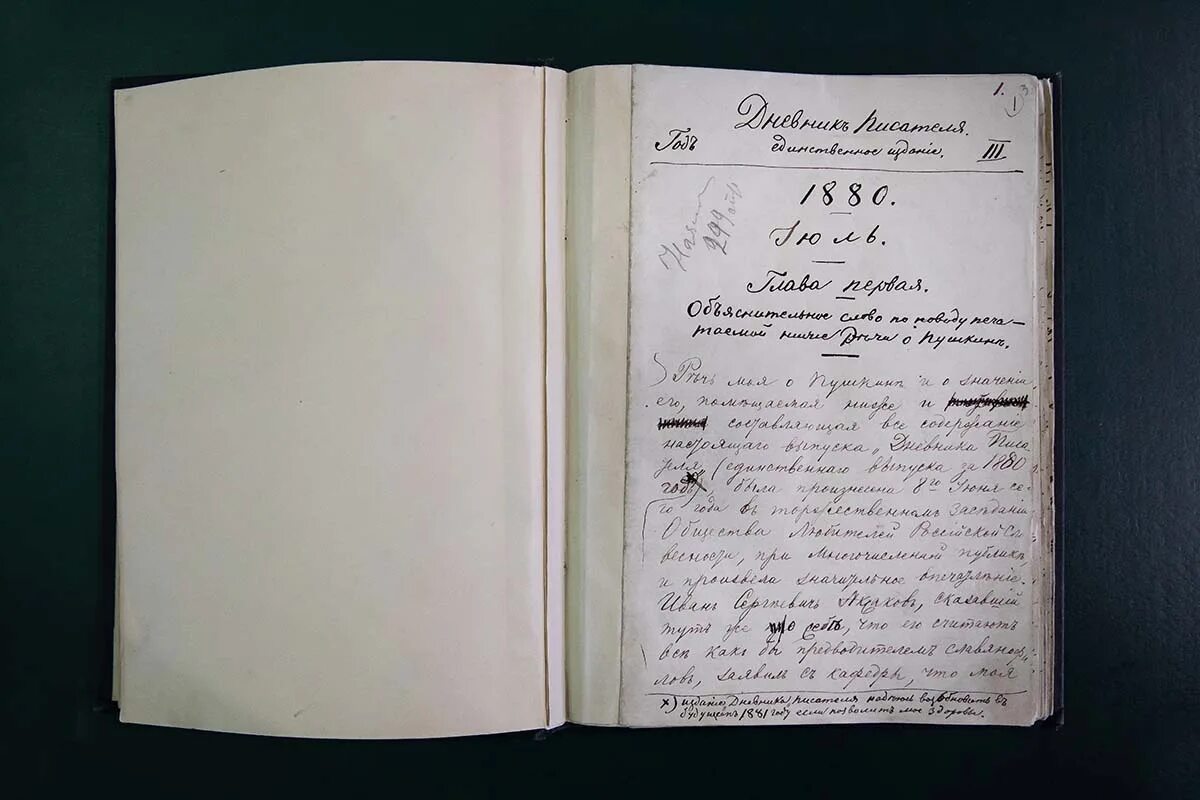 1.
1
3
Дневникъ писателя.
Годъ единственное изданiе. III
1880.
299
Iюль.
Глава первая.
Объяснительное слово по поводу печа-
таемой ниже рѣчи о Пушкинѣ.
Рѣчь моя о Пушкинѣ и о значенiи
его, помѣщаемая ниже и
составляющая все содержанiе
настоящаго выпуска „Дневника Писа-
теля„ (единственнаго выпуска за 1880
годъ*), была произнесена 8го Iюня се-
го года въ торжественномъ засѣданiи
Общества Любителей Россiйской Сло-
весности, при многочисленной публикѣ,
и произвела значительное впечатлѣнiе.
Иванъ Сергѣевичъ Аксаковъ, сказавшiй
тутъ же о себѣ, что его считаютъ
всѣ какъ бы предводителемъ славянофи-
ловъ, заявилъ съ кафедры, что моя
*) изданiе Дневника писателя надѣюсь возобновить въ
будущемъ 1881 году если позволитъ мое здоровье.